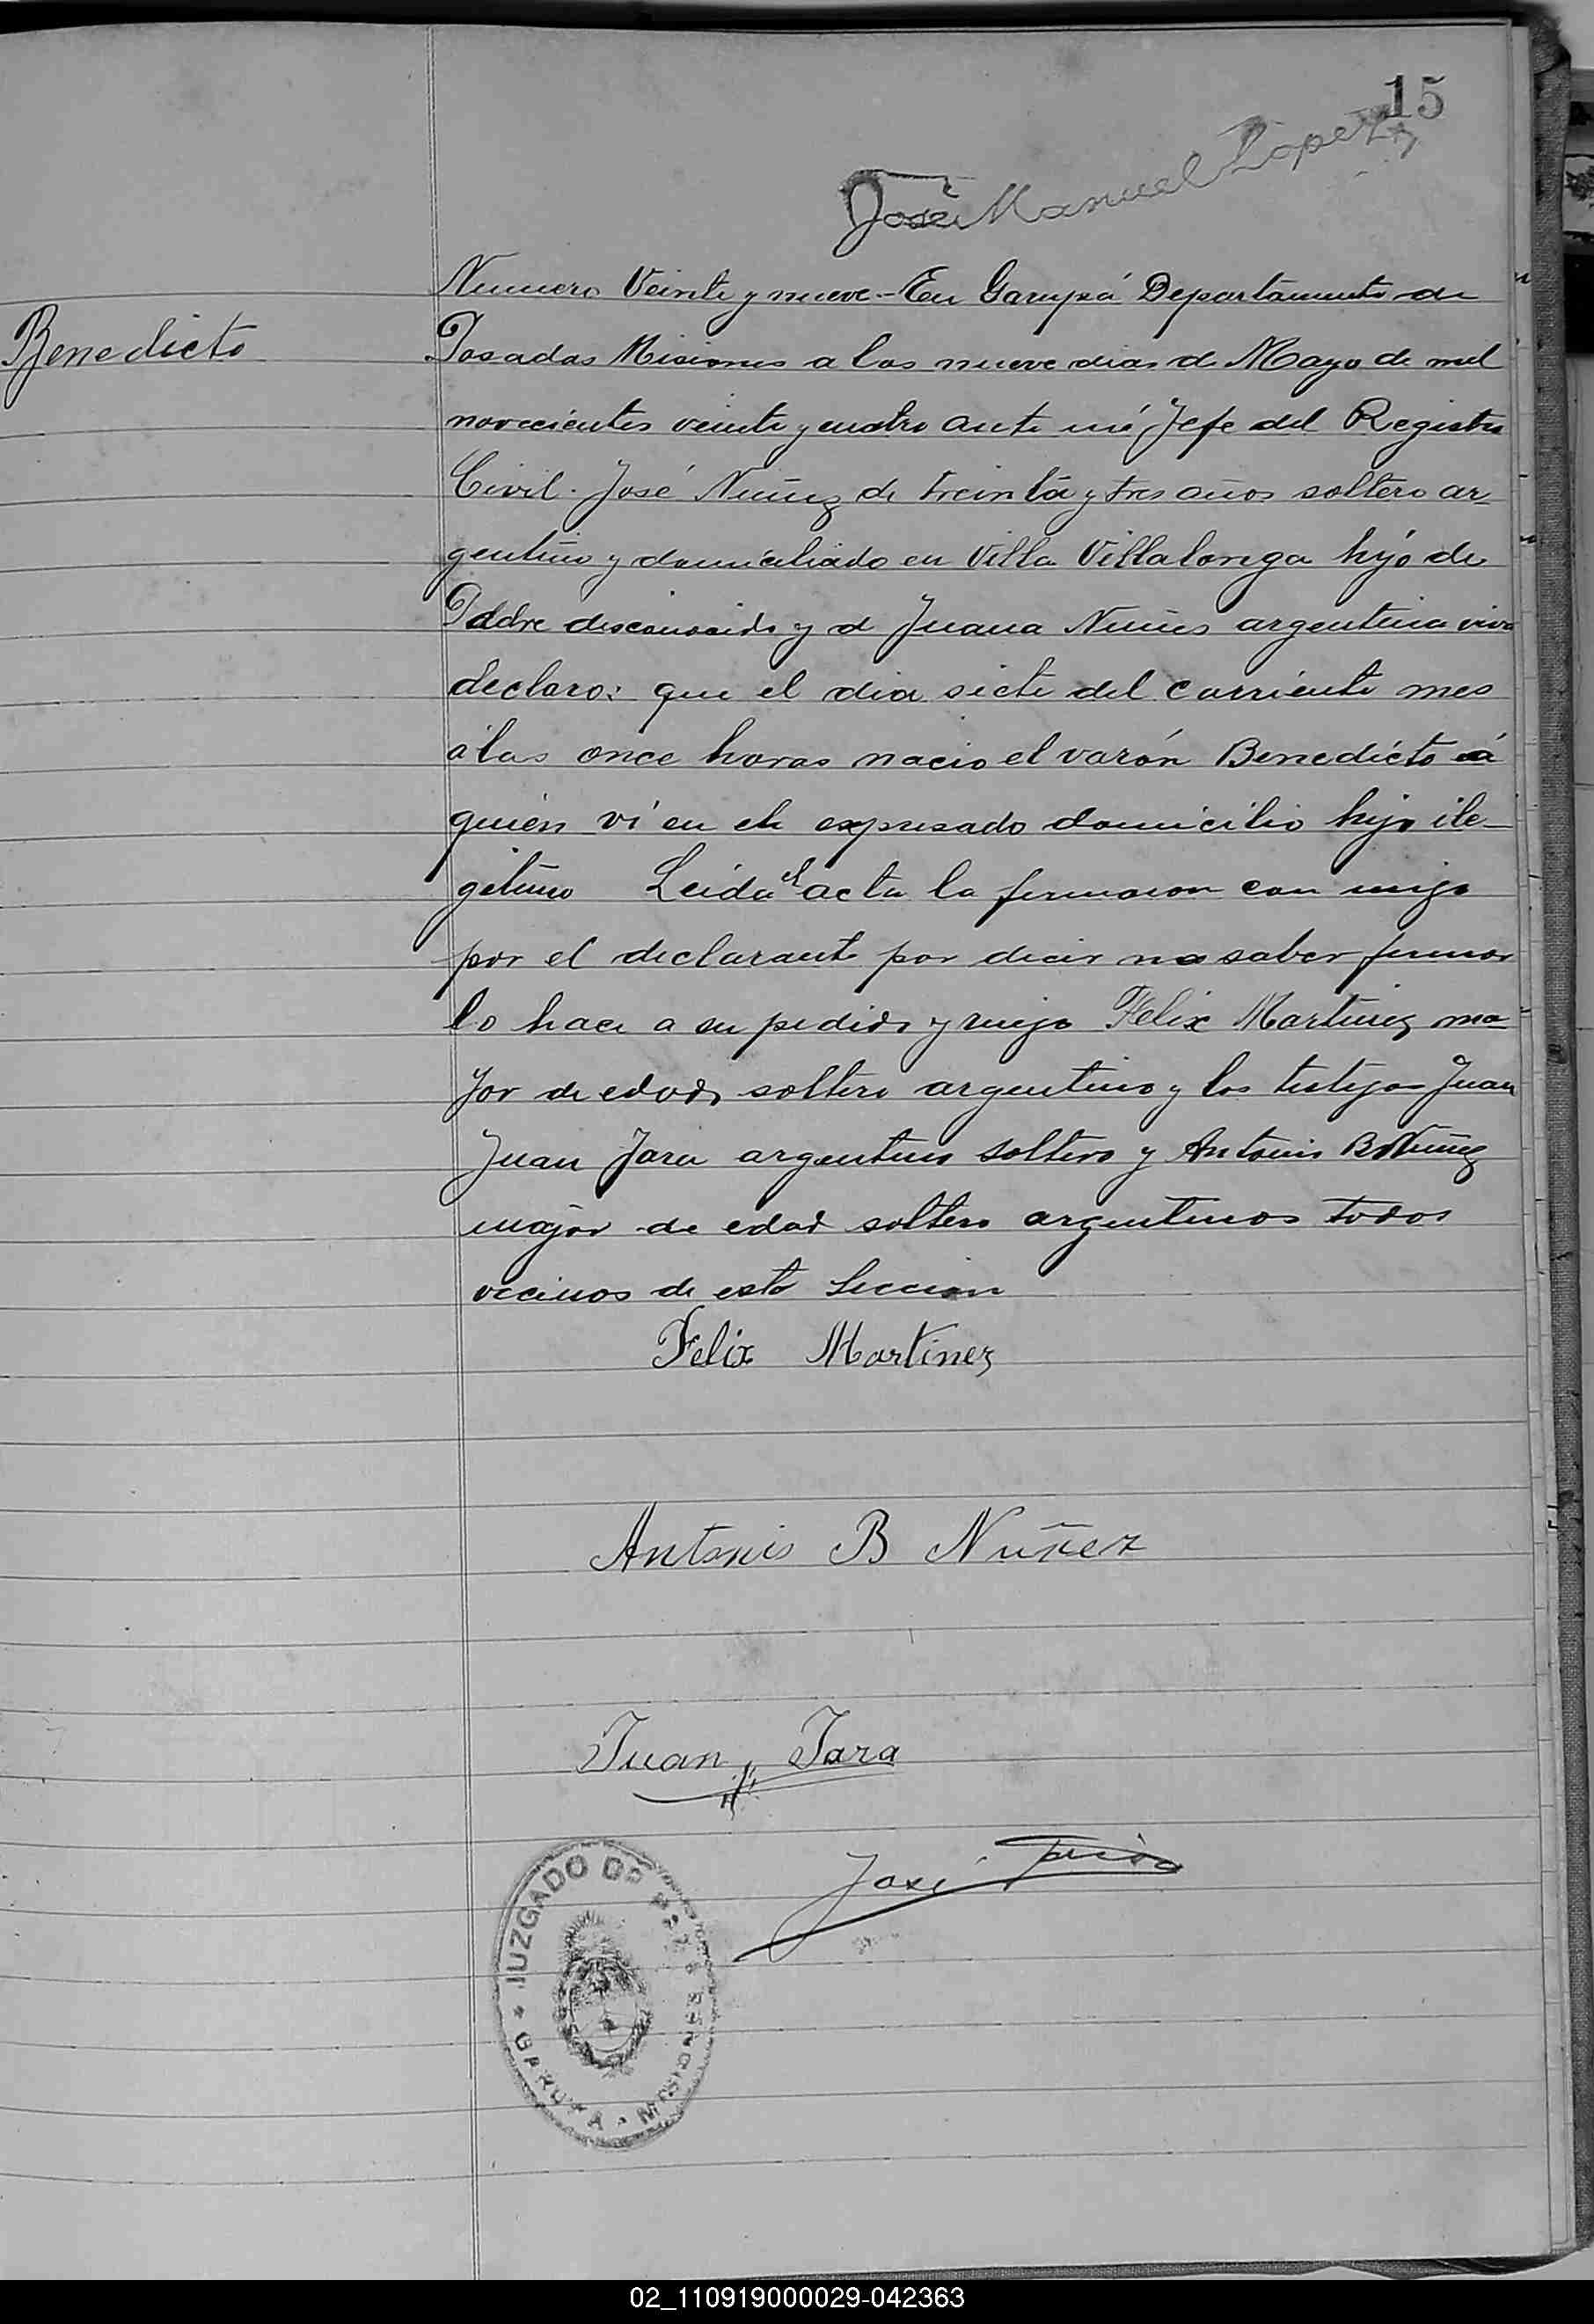 15
José Manuel Lopez
Numero Veinte y nueve - En Garupá Departamento de
Benedicto
Posadas Misiones a los nueve dias de Mayo de mil
novecientos veinte y cuatro ante mi Jefe del Registro
Civil. José Nuñez de treinta y tres años soltero ar-
gentino y domiciliado en Villa Villalonga hijo de
Padre desconocido y d Juana Nuñes argentina viva
declaro: que el dia siete del corriente mes
a las once horas nacio el varón Benedicto á
quien vi en el expresado domicilio hijo ile-
gitimo Leida el acta la firmaron con migo
por el declarante por decir no saber firmar
lo hace a su pedido y ruego Felix Martinez ma-
yor de edad, soltero argentino y los testigos Juan
Juan Jara argentino soltero y Antonio B Nuñez
mayor de edad soltero argentinos todos
vecinos de esta Seccion
Felix Martinez
Antonio B Nuñez
Juan Jara
José
JUZGADO DE PAZ
GARUPA - MISIONES
02_110919000029-042363